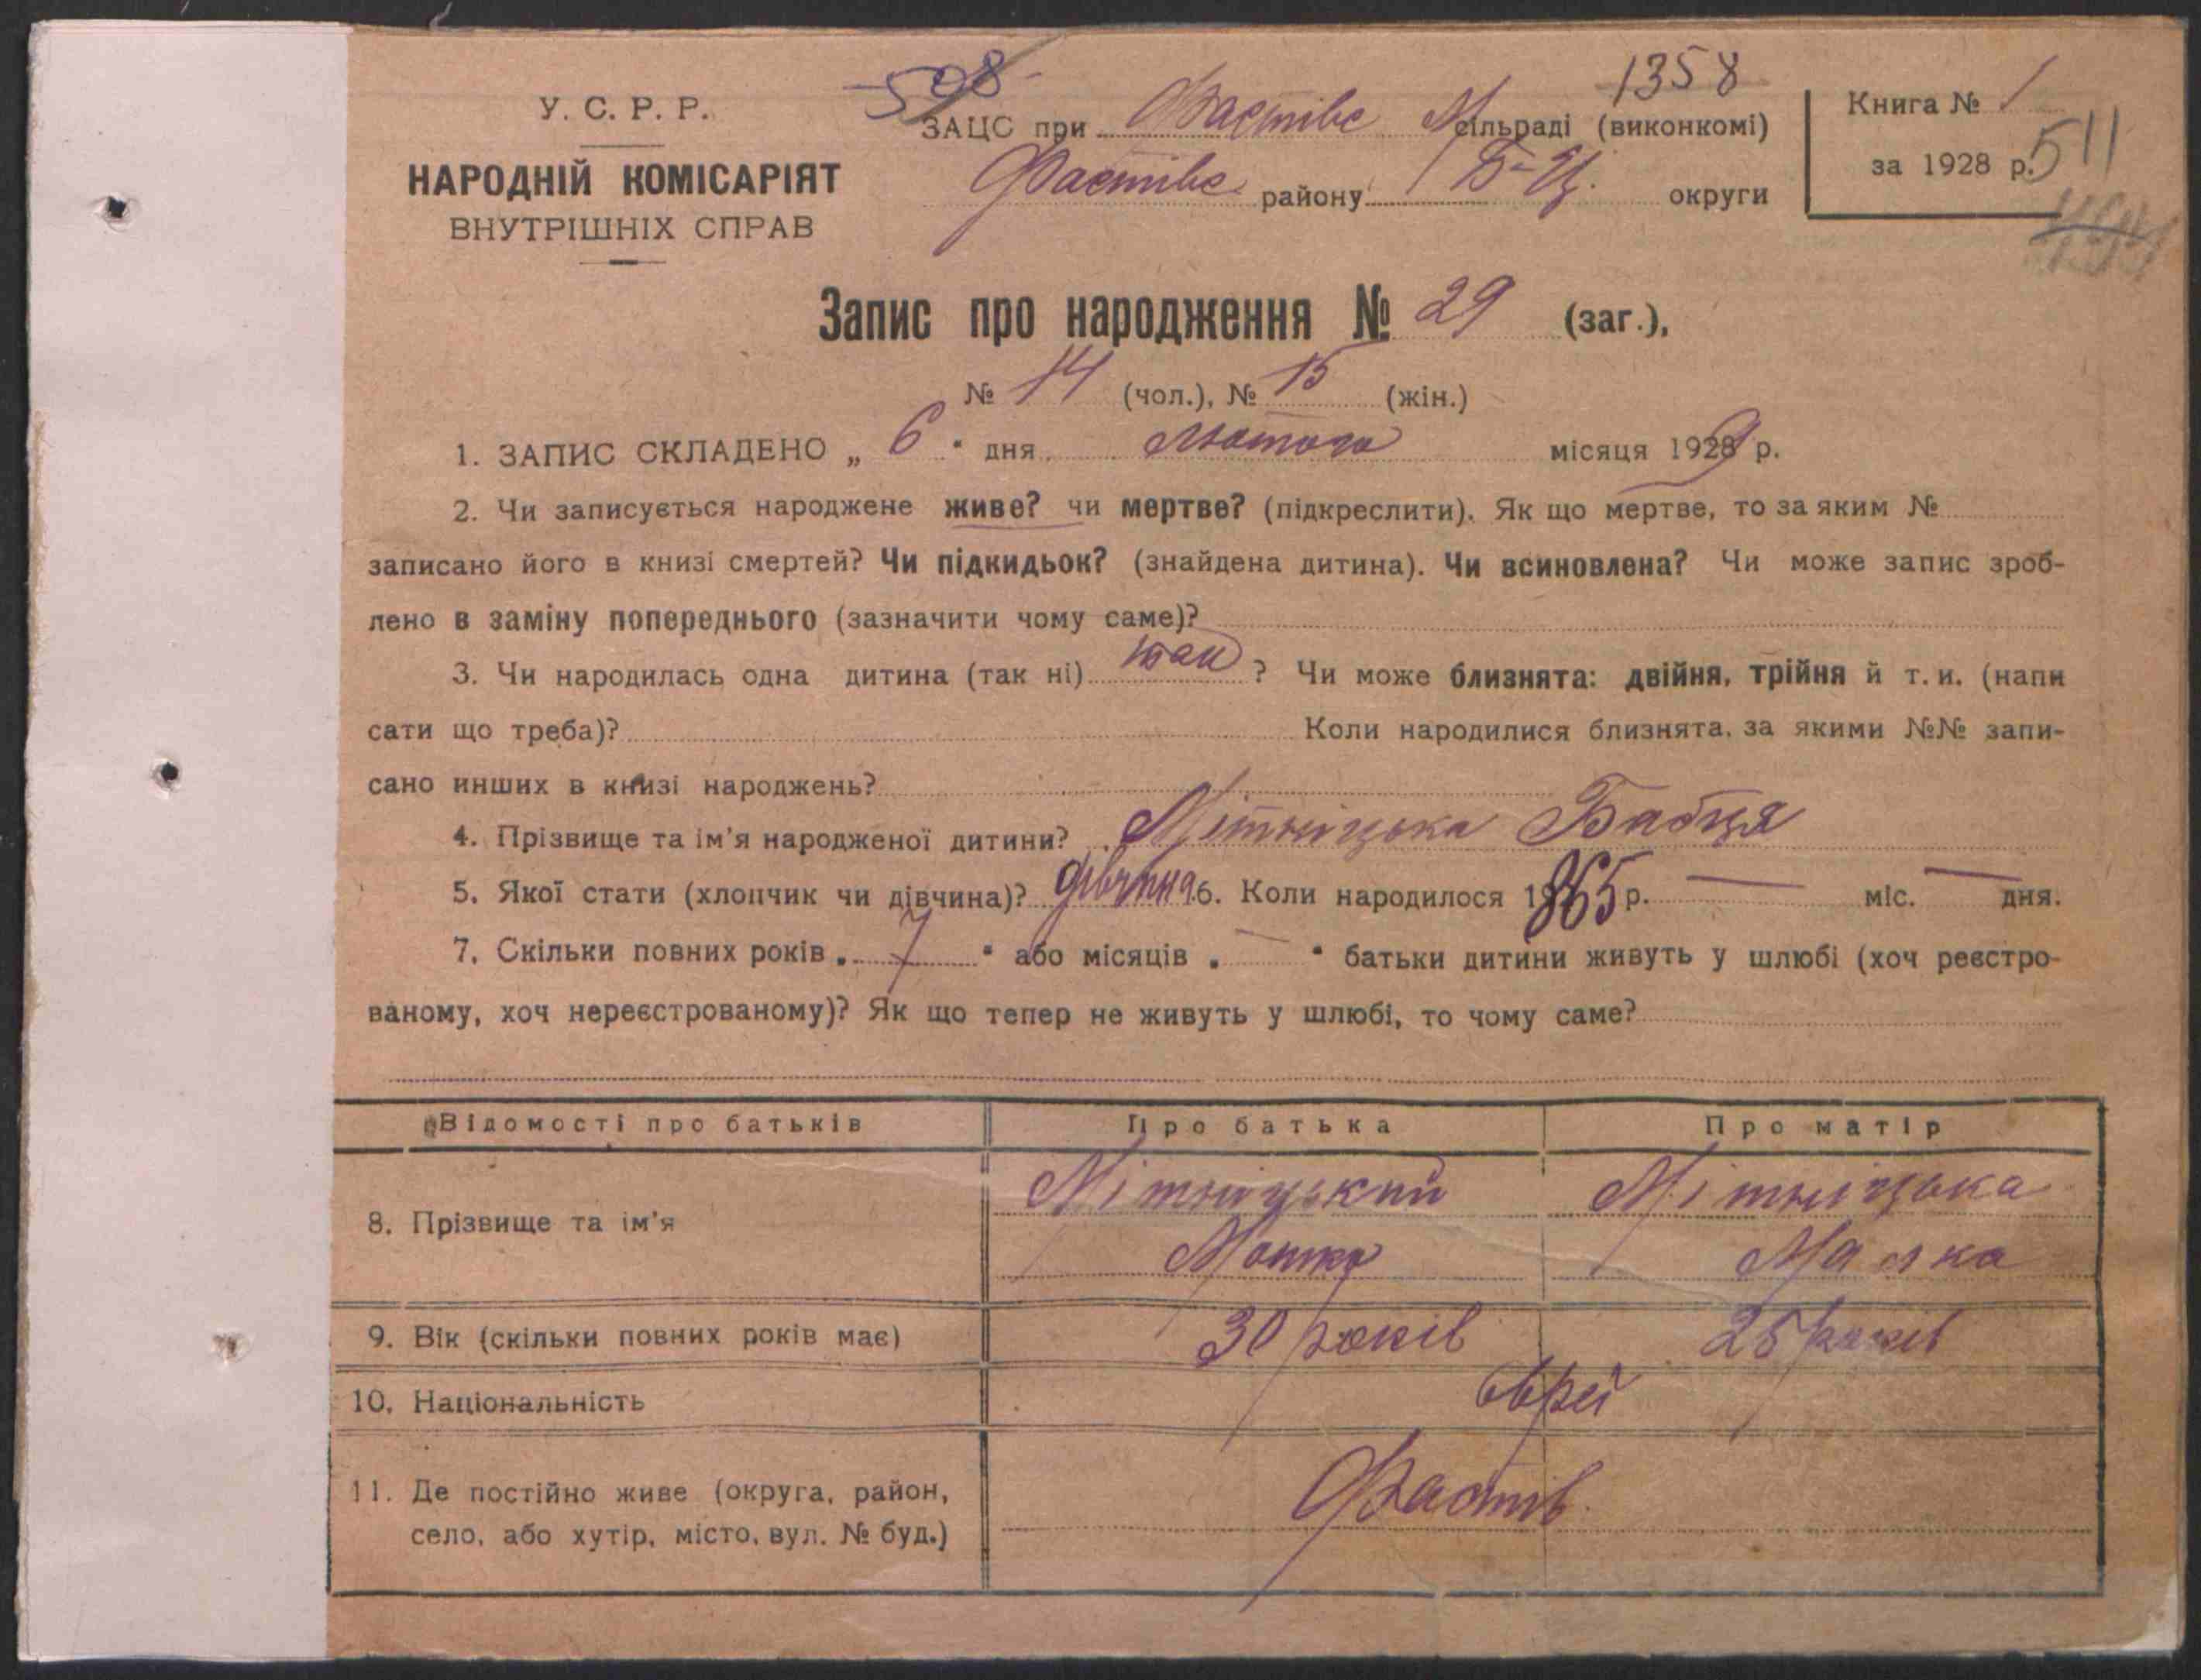 508
1358
У. С. Р. Р.
ЗАЦС при Фастівс М сільраді (виконкомі)
Книга № 1
511
НАРОДНІЙ КОМІСАРІЯТ
Фастівс. району Б-Ц. округи
за 1928 р.
ВНУТРІШНІХ СПРАВ
Запис про народження № 29 (заг.),
№ 14 (чол.), № 15 (жін.)
1. ЗАПИС СКЛАДЕНО „ 6 " дня лютого місяця 1929 р.
2. Чи записується народжене живе? чи мертве? (підкреслити). Як що мертве, то за яким №
записано його в книзі смертей? Чи підкидьок? (знайдена дитина). Чи всиновлена? Чи може запис зроб-
лено в заміну попереднього (зазначити чому саме)?
3. Чи народилась одна дитина (так ні) так ? Чи може близнята: двійня, трійня й т. и. (напи
сати що треба)? Коли народилися близнята, за якими №№ запи-
сано инших в книзі народжень?
4. Прізвище та ім'я народженої дитини? Мітніцька Бабця
5. Якої стати (хлопчик чи дівчина)? дівчина 6. Коли народилося 1865 р. — міс. — дня.
7. Скільки повних років „ 7 " або місяців „ — " батьки дитини живуть у шлюбі (хоч реєстро-
ваному, хоч нереєстрованому)? Як що тепер не живуть у шлюбі, то чому саме?
Відомості про батьків Про батька Про матір
8. Прізвище та ім'я Мітніцький Мошко Мітніцька Малка
9. Вік (скільки повних років має) 30 років 25 років
10. Національність єврей
11. Де постійно живе (округа, район,
село, або хутір, місто, вул. № буд.) Фастів.